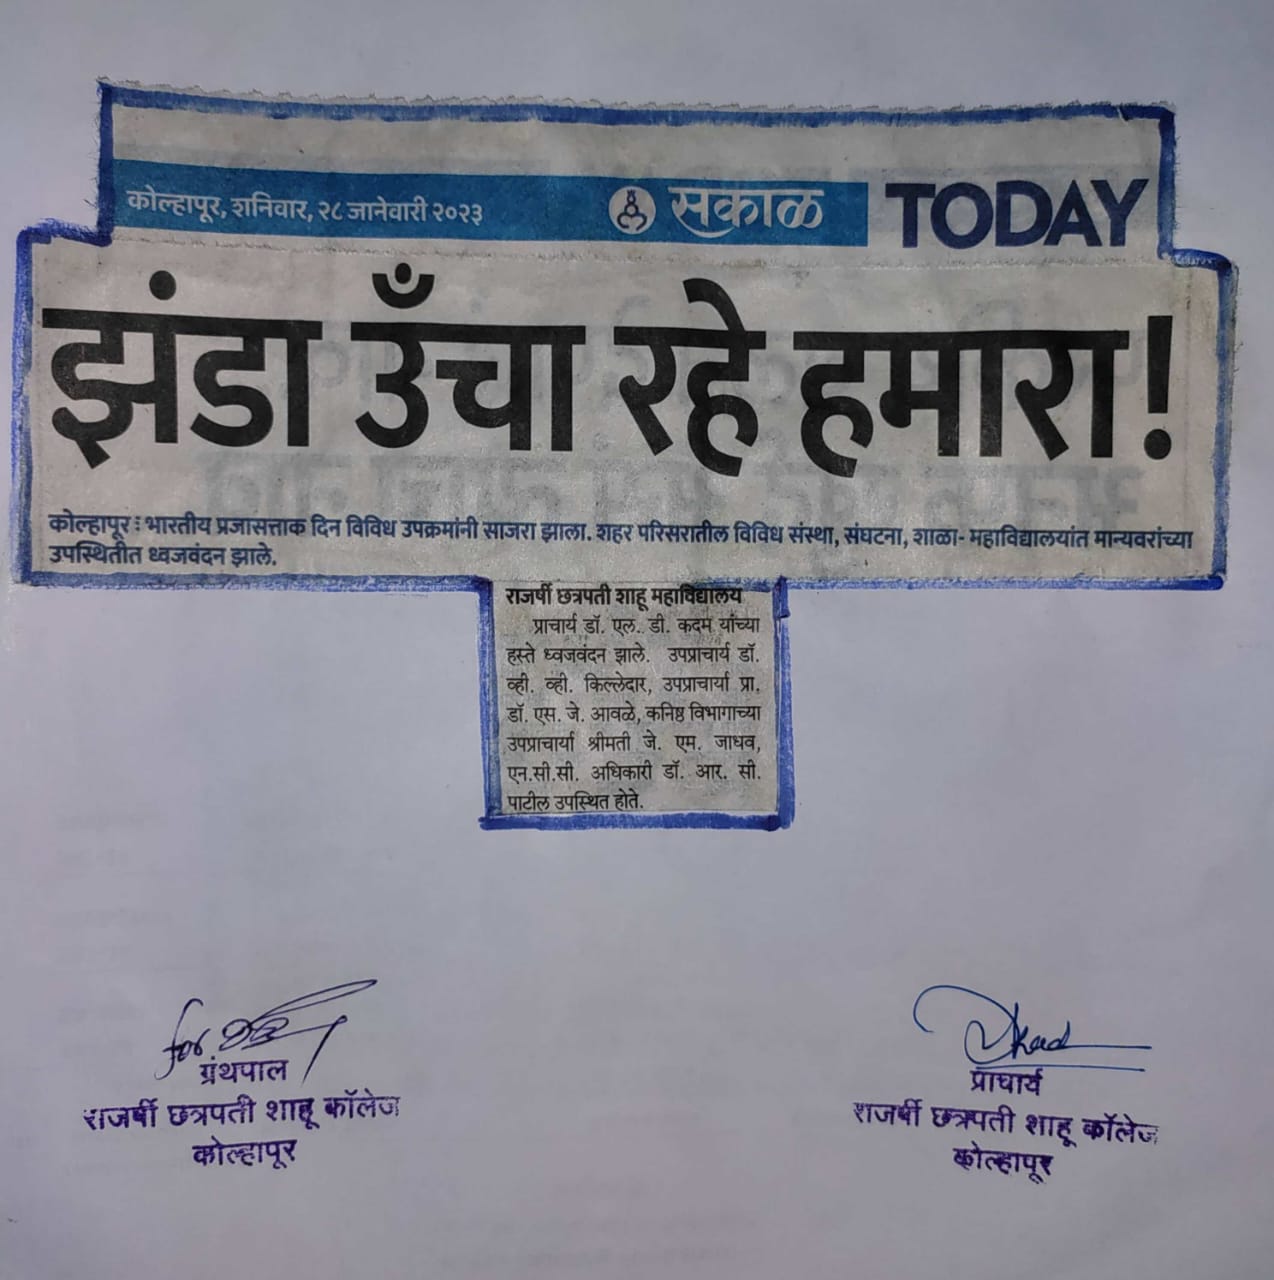 कोल्हापूर, शनिवार, २८ जानेवारी २०२३ सकाळ TODAY
झंडा उँचा रहे हमारा!
कोल्हापूर : भारतीय प्रजासत्ताक दिन विविध उपक्रमांनी साजरा झाला. शहर परिसरातील विविध संस्था, संघटना, शाळा- महाविद्यालयांत मान्यवरांच्या
उपस्थितीत ध्वजवंदन झाले.
राजर्षी छत्रपती शाहू महाविद्यालय
प्राचार्य डॉ. एल. डी. कदम यांच्या
हस्ते ध्वजवंदन झाले. उपप्राचार्य डॉ.
व्ही. व्ही. किल्लेदार, उपप्राचार्या प्रा.
डॉ. एस. जे. आवळे, कनिष्ठ विभागाच्या
उपप्राचार्या श्रीमती जे. एम. जाधव,
एन.सी.सी. अधिकारी डॉ. आर. सी.
पाटील उपस्थित होते.
for
ग्रंथपाल
राजर्षी छत्रपती शाहू कॉलेज
कोल्हापूर
प्राचार्य
राजर्षी छत्रपती शाहू कॉलेज
कोल्हापूर